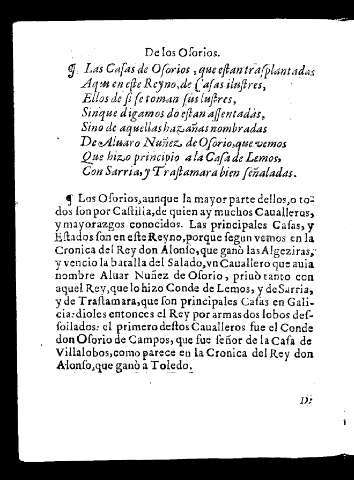 De los Osorios.
¶ Las Casas de Osorios, que estan trasplantadas
Aqui en este Reyno, de Casas ilustres,
Ellos de si se toman sus lustres,
Sin que digamos do estan assentadas,
Sino de aquellas hazañas nombradas
De Aluaro Nuñez de Osorio, que vemos
Que hizo principio a la Casa de Lemos,
Con Sarria, y Trastamara bien señaladas.
¶ Los Osorios, aunque la mayor parte dellos, o to-
dos son por Castilia, de quien ay muchos Caualleros,
y mayorazgos conocidos. Las principales Casas, y
Estados son en este Reyno, porque segun vemos en la
Cronica del Rey don Alonso, que ganò las Algeziras,
y vencio la batalla del Salado, vn Cauallero que auia
nombre Aluar Nuñez de Osorio, priuò tanto con
aquel Rey, que lo hizo Conde de Lemos, y de Sarria,
y de Trastamara, que son principales Casas en Gali-
cia: dioles entonces el Rey por armas dos lobos des-
sollados: el primero destos Caualleros fue el Conde
don Osorio de Campos, que fue señor de la Casa de
Villalobos, como parece en la Cronica del Rey don
Alonso, que ganò a Toledo.